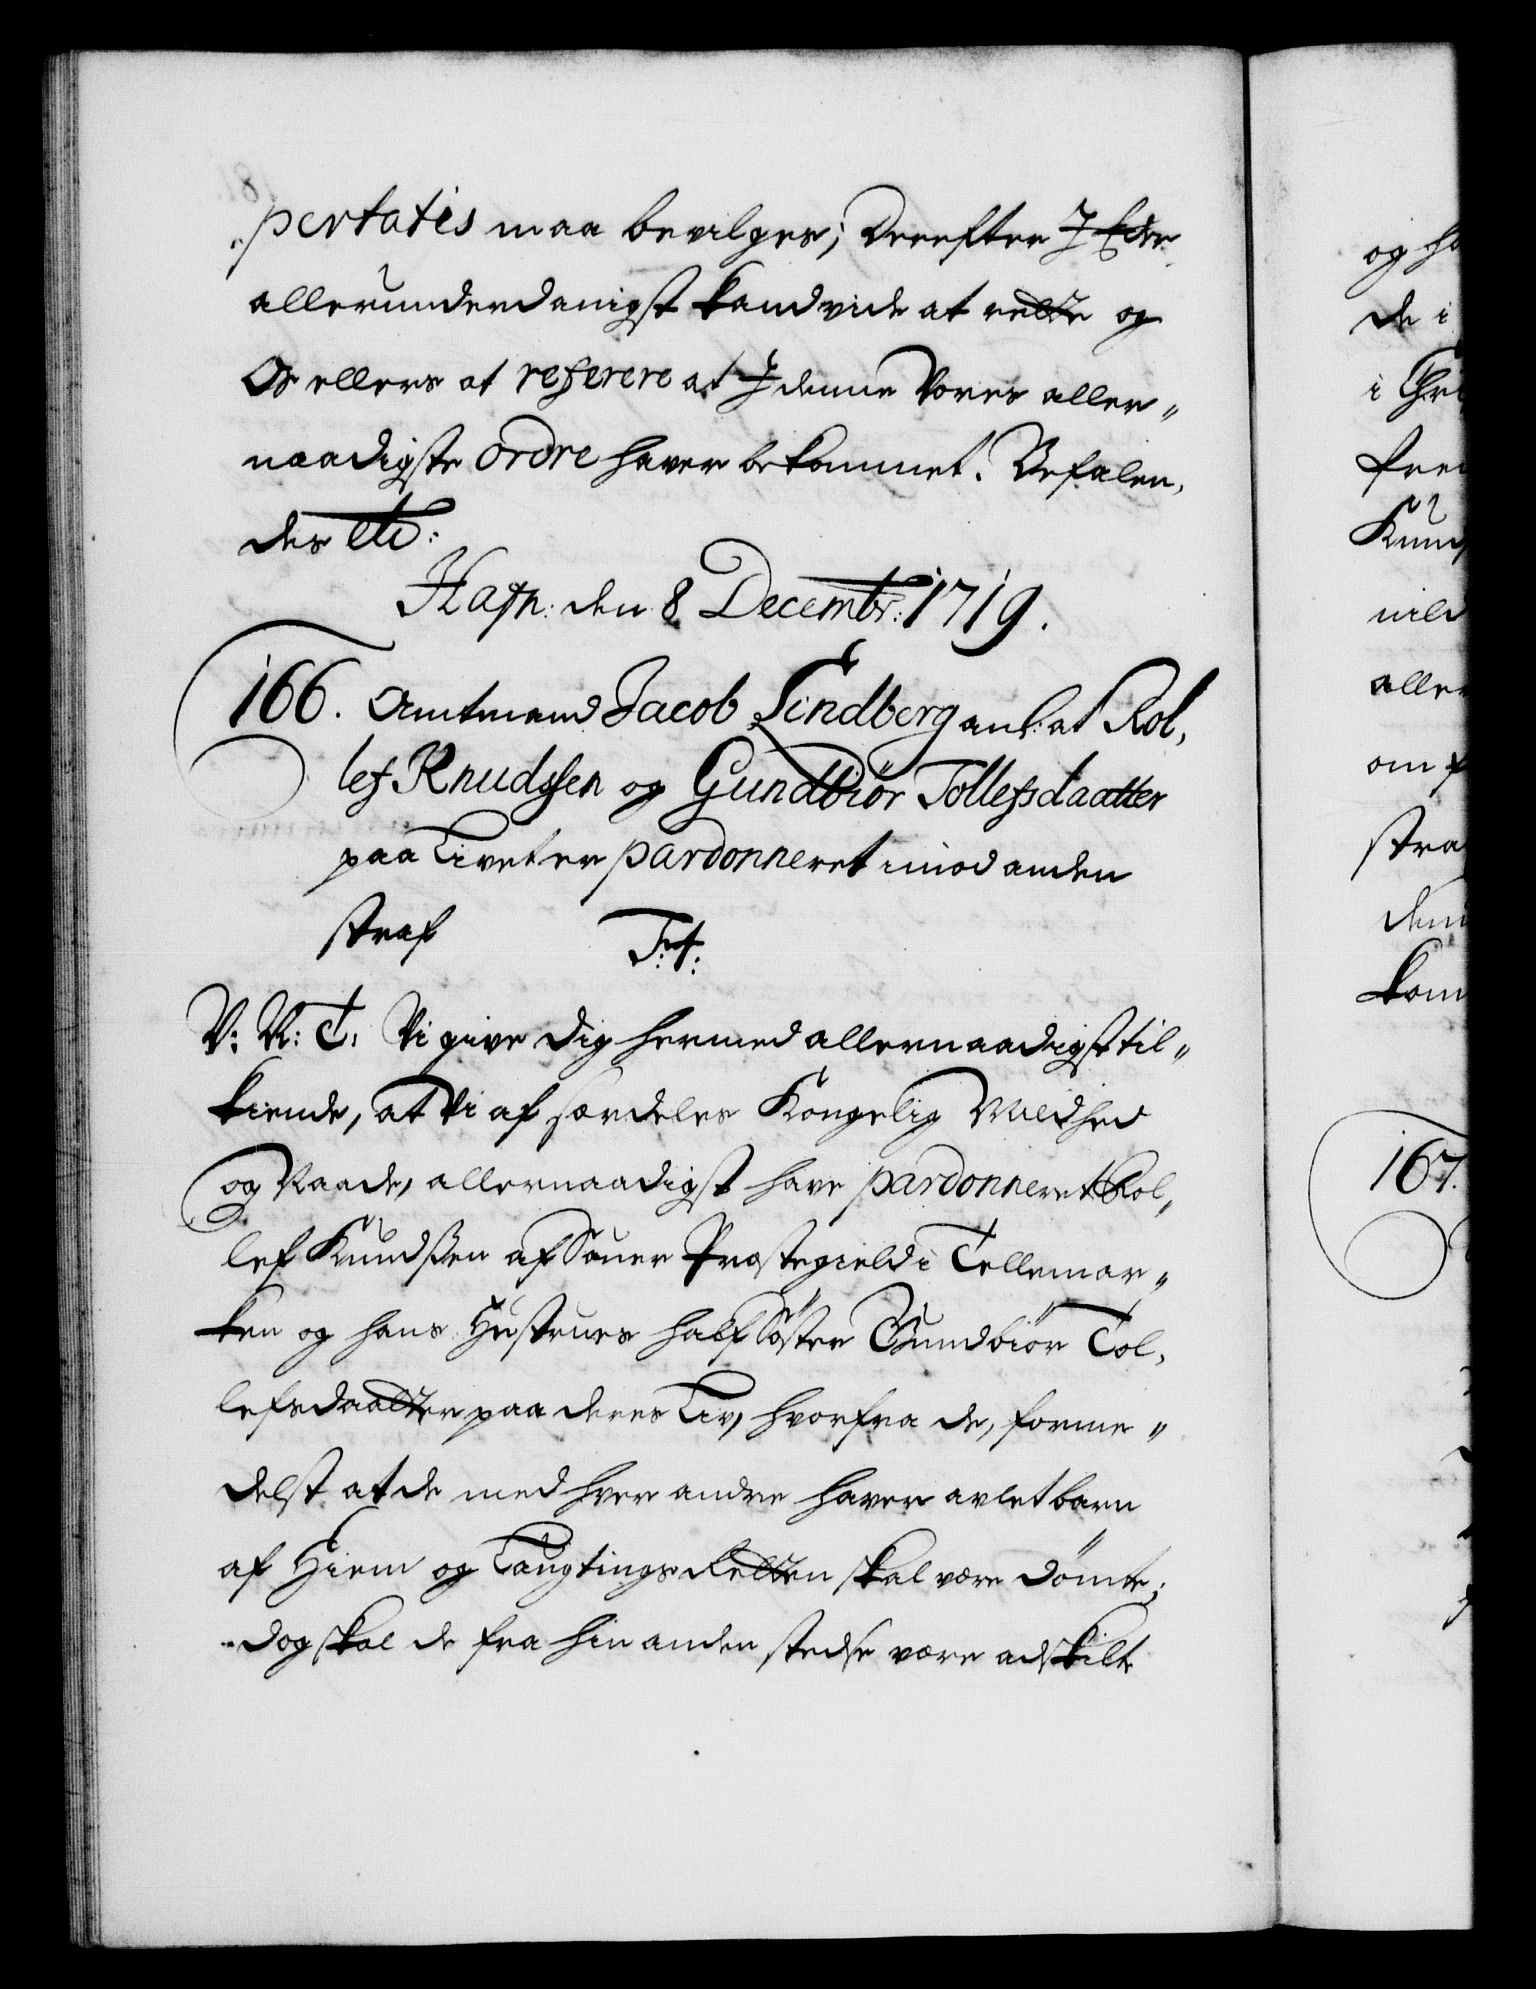 „pertatis maa bevilges; Derefter I Eder
allerunderdanigst kand vide at rette og
Os ellers at referere at I denne Vores aller„
naadigste ordre haver bekommet. Befalen,
des etc:
Hafn: den 8 Decembr: 1719.
166. Amtmand Jacob Lindberg anl: at Rol,
lef Knudssen og Gundbiör Tollefsdaatter
paa Livet er pardonneret imod anden
straf T: t:
V: N: T: Vi give dig hermed allernaadigst til„
kiende, at Vi af særdeles Kongelig Mildhed
og Naade, allernaadigst have pardonneret Rol„
lef Knudssen af Souer Præstegield i Tellemar„
ken og hans Hustrues half Söster Gundbiör Tol,
lefsdaatter paa deres Liv, hvorfra de, forme„
delst at de med hver andre haver avlet barn
af Hiem og Laugtings Retten skal være dömte;
dog skal de fra hinanden stedse være adskilt
og
de i
i
Knud
aller
om
stra
kom
167.